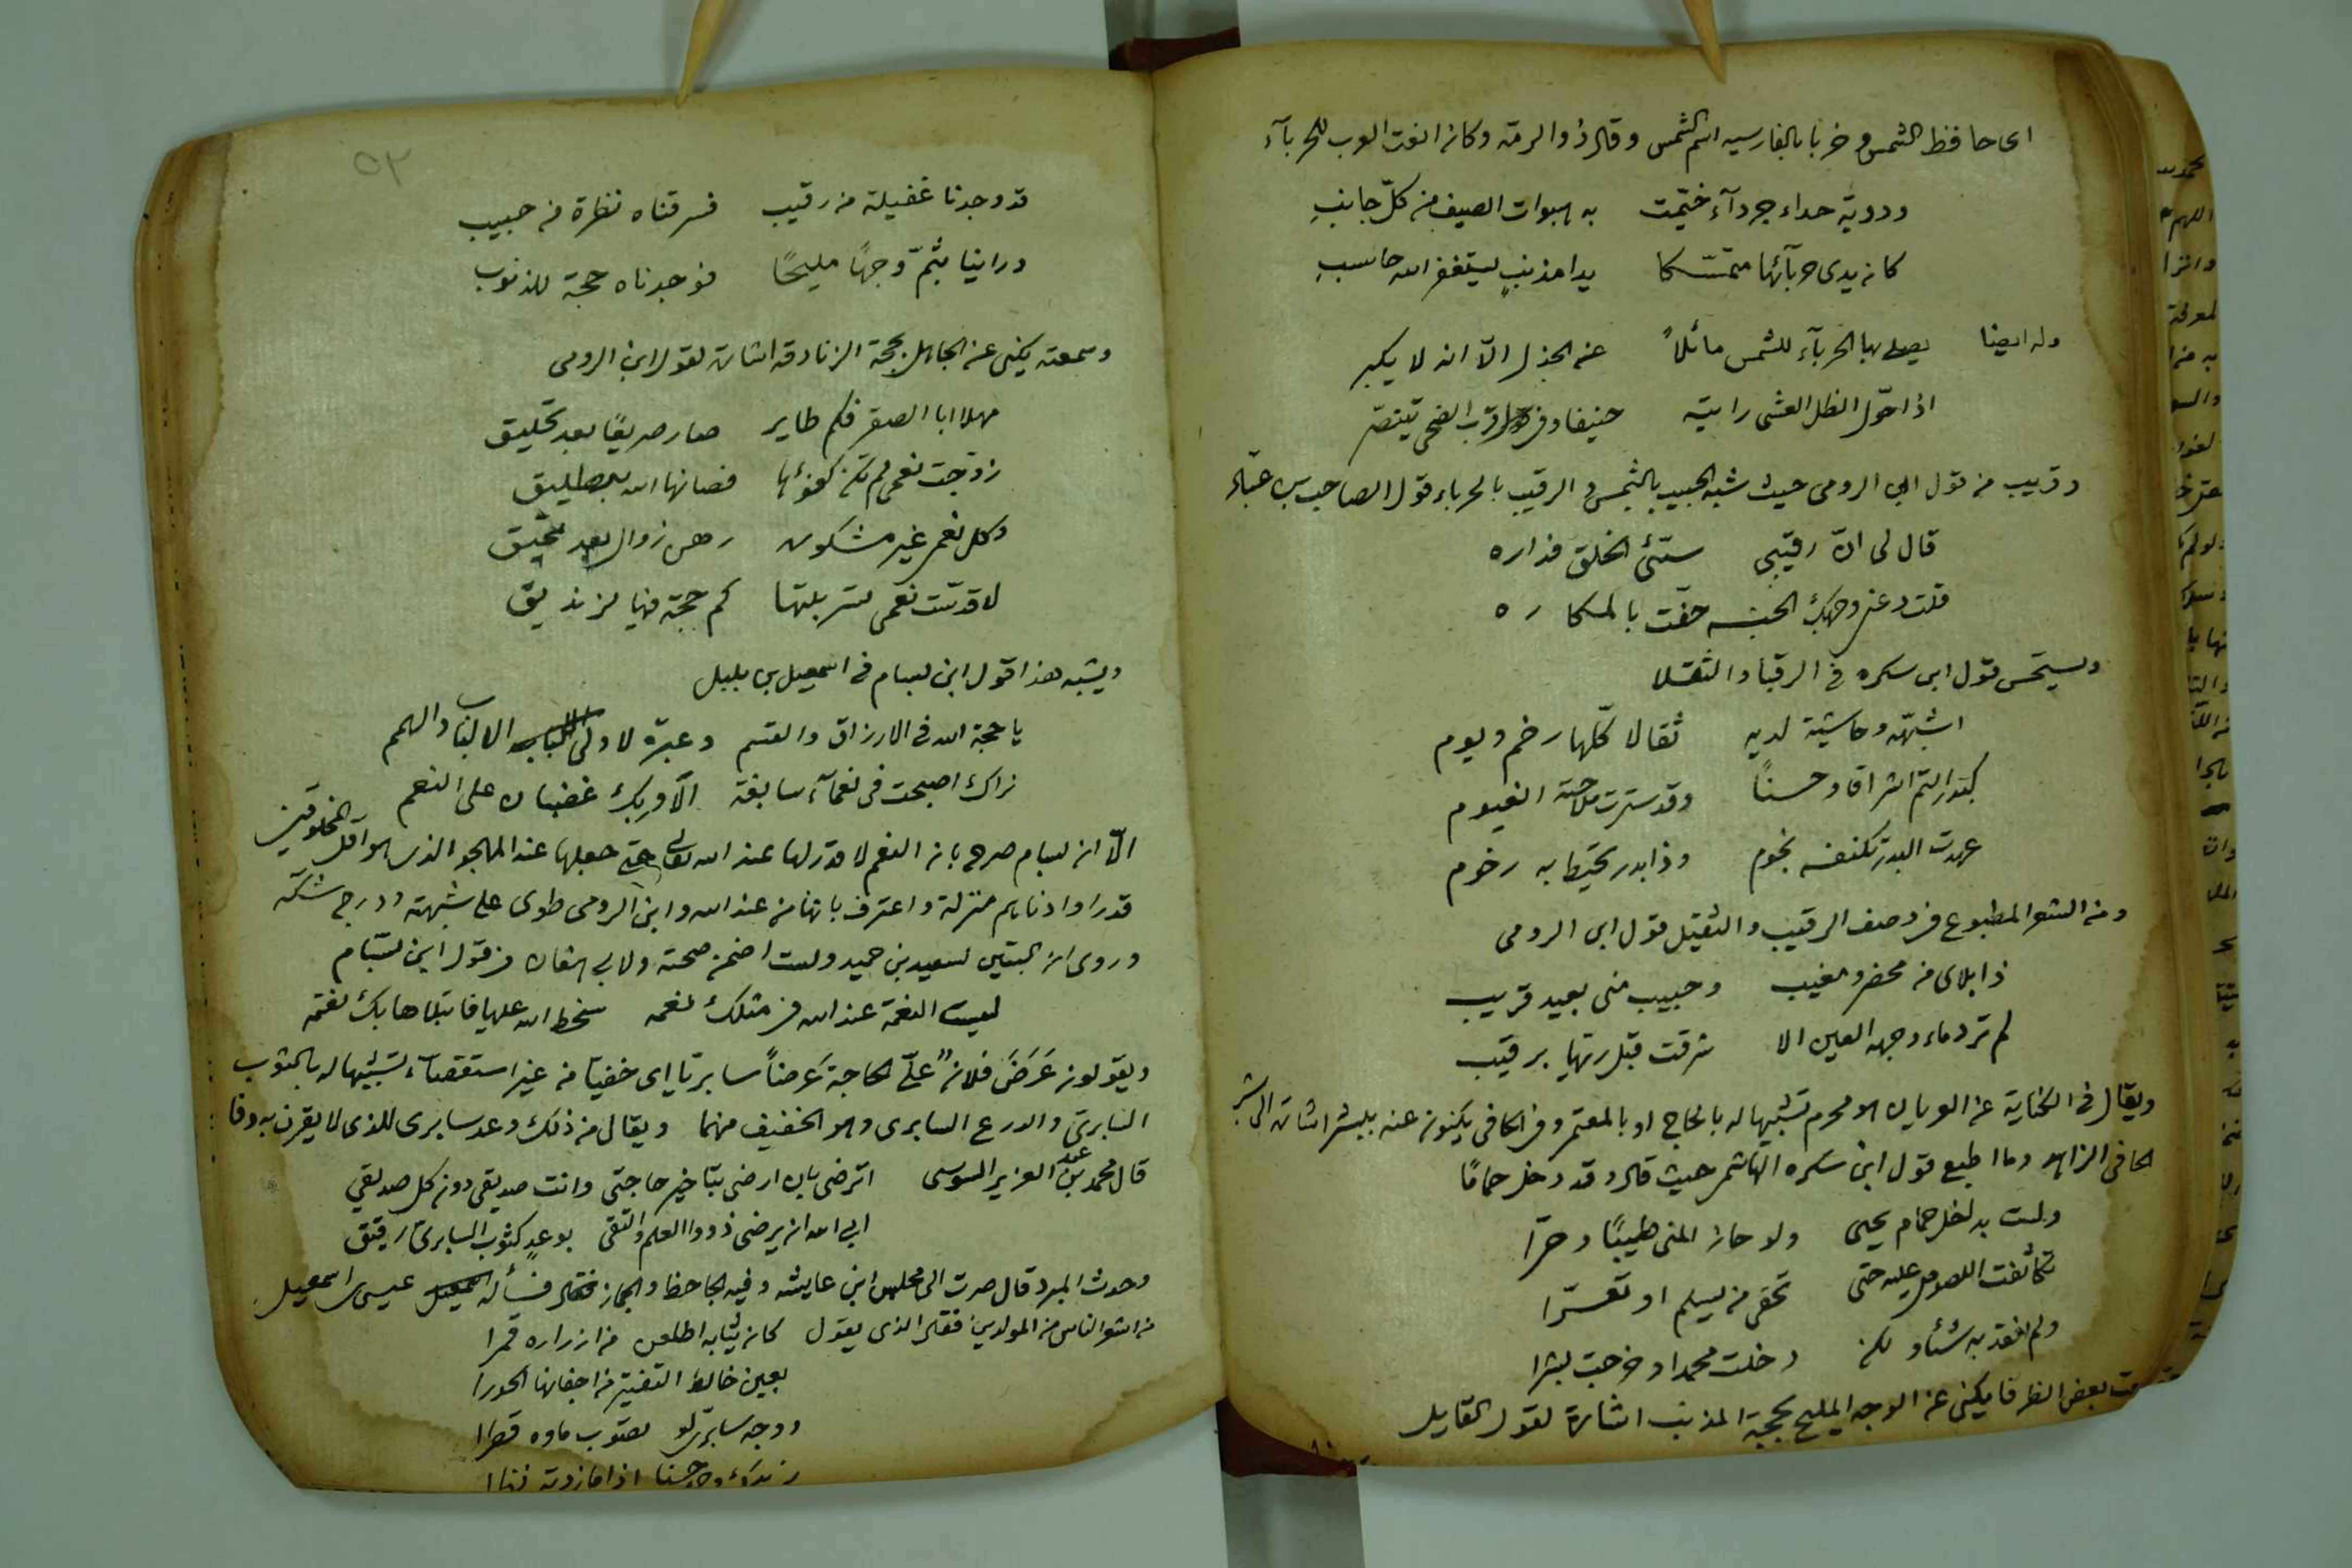 اى حافظ الشمس و خربا بالفارسيه اسم الشمس وقال ذو الرمة وكان انعت العرب للحرباء
ودوية جداء جردآء خيمت به هبوات الصيف من كل جانب
كان يدى حربآئها متمسكا يدا مذنب يستغفر الله حاسب
وله ايضا يصلى بها الحربآء للشمس مائلاً على الجذل الّا انه لا يكبر
اذا حوّل الظل العشى رايته حنيفا وفى قرب الضحى يتنصر
وقريب من قول ابن الرومى حيث شبه الحبيب بالشمس و الرقيب بالحرباء قول الصاحب بن عباد
قال لى انّ رقيبى سئ الخلق فداره
قلت دعنى وجهك الجنه حفّت بالمكاره
ويستحسن قول ابن سكره فى الرقبا والثقلا
اشبهه وحاشية لديه ثقالا كلّها رخم وبوم
كبدر التم اشراقا وحسنًا وقد سترت ملاحته الغيوم
عهدت البدر تكنفه نجوم وذا بدر تحيط به رخوم
ومن الشعر المطبوع فى وصف الرقيب والثقيل قول ابن الرومى
ذا بلاى من محضر ومغيب وحبيب منى بعيد قريب
لم ترد ماء وجهه العين الا شرقت قبل ريها برقيب
ويقال فى الكناية عن العريان هو محرم تشبيها له بالحاج او بالمعتمر وفى الحافى يكنون عنه ببشر اشارة الى بشر
الحافى الزاهد وما اطبع قول ابن سكره الهاشمى حيث قال وقد دخل حمامًا
ولست بداخل حمام يحيى ولو حاز المنى طيبًا وحرّا
تكاثفت اللصوص عليه حتى تحفى من يسلم او تعرّا
ولم افقد به شئا ولكن دخلت محمدا وخرجت بشرا
سمعت بعض الظرفا يكنى عن الوجه المليح بحجة المذنب اشارة لقول القايل
٥٢
قد وجدنا غفيلة من رقيب فسرقناه نظرة من حبيب
وراينا بثمّ وجهًا مليحًا فوجدناه حجة للذنوب
وسمعته يكنى عن الجاهل بحجة الزنادقه اشارة لقول ابن الرومى
مهلا ابا الصقر فكم طاير صار صريعًا بعد تحليق
زوّجت نعمى لم تكن كفؤها فصانها الله بتطليق
وكل نعمى غير مشكوره رهن زوال بعد تمحيق
لا قدّست نعمى تسربلتها كم حجة فيها لزنديق
ويشبه هذا قول ابن بسام فى اسمعيل بن بلبل
يا حجة الله فى الارزاق والقسم وعبرة لاولى الالباب والهمم
نراك اصبحت فى نعمآء سابغة الّا وربك غضبان على النعم
الّا ان بسام صرح بان النعم لا قدر لها عند الله تعالى حتى جعلها عند المهجو الذى هو اقل المخلوقين
قدرا وادناهم منزلة واعترف بانها من عند الله وابن الرومى طوى على شبهته ودرج شكه
وروى ان البيتين لسعيد بن حميد ولست اضمن صحته ولابى هفان من قول ابن بسّام
ليست النعمة عند الله فى مثلك نعمه سخط الله عليها فابتلاها بك نقمه
ويقولون عَرَضَ فلانٌ علىّ الحاجة عَرضاً سابريا اى خفيا من غير استقصآء تشبيها له بالثوب
السابرى والدرع السابرى وهو الخفيف منهما ويقال من ذلك وعد سابرى للذى لا يقرن به وفا
قال محمد بن عبد العزيز السوسى اترضى بان ارضى بتاخير حاجتى وانت صديقى دون كل صديق
ابى الله ان يرضى ذووا العلم والتقى بوعدٍ كثوب السابرىّ رقيق
وحدث المبرد قال صرت الى مجلس ابن عايشه وفيه الجاحظ والجماز فسأله عيسى بن اسمعيل
من اشعر الناس من المولدين فقال الذى يقول كان ثيابه اطلعن من ازراره قمرا
بعين خالط التفتير من اجفانها الحورا
ووجه سابرى لو تصوب ماوه قطرا
يزيدك وجهه حسنا اذا ما زدته نظرا